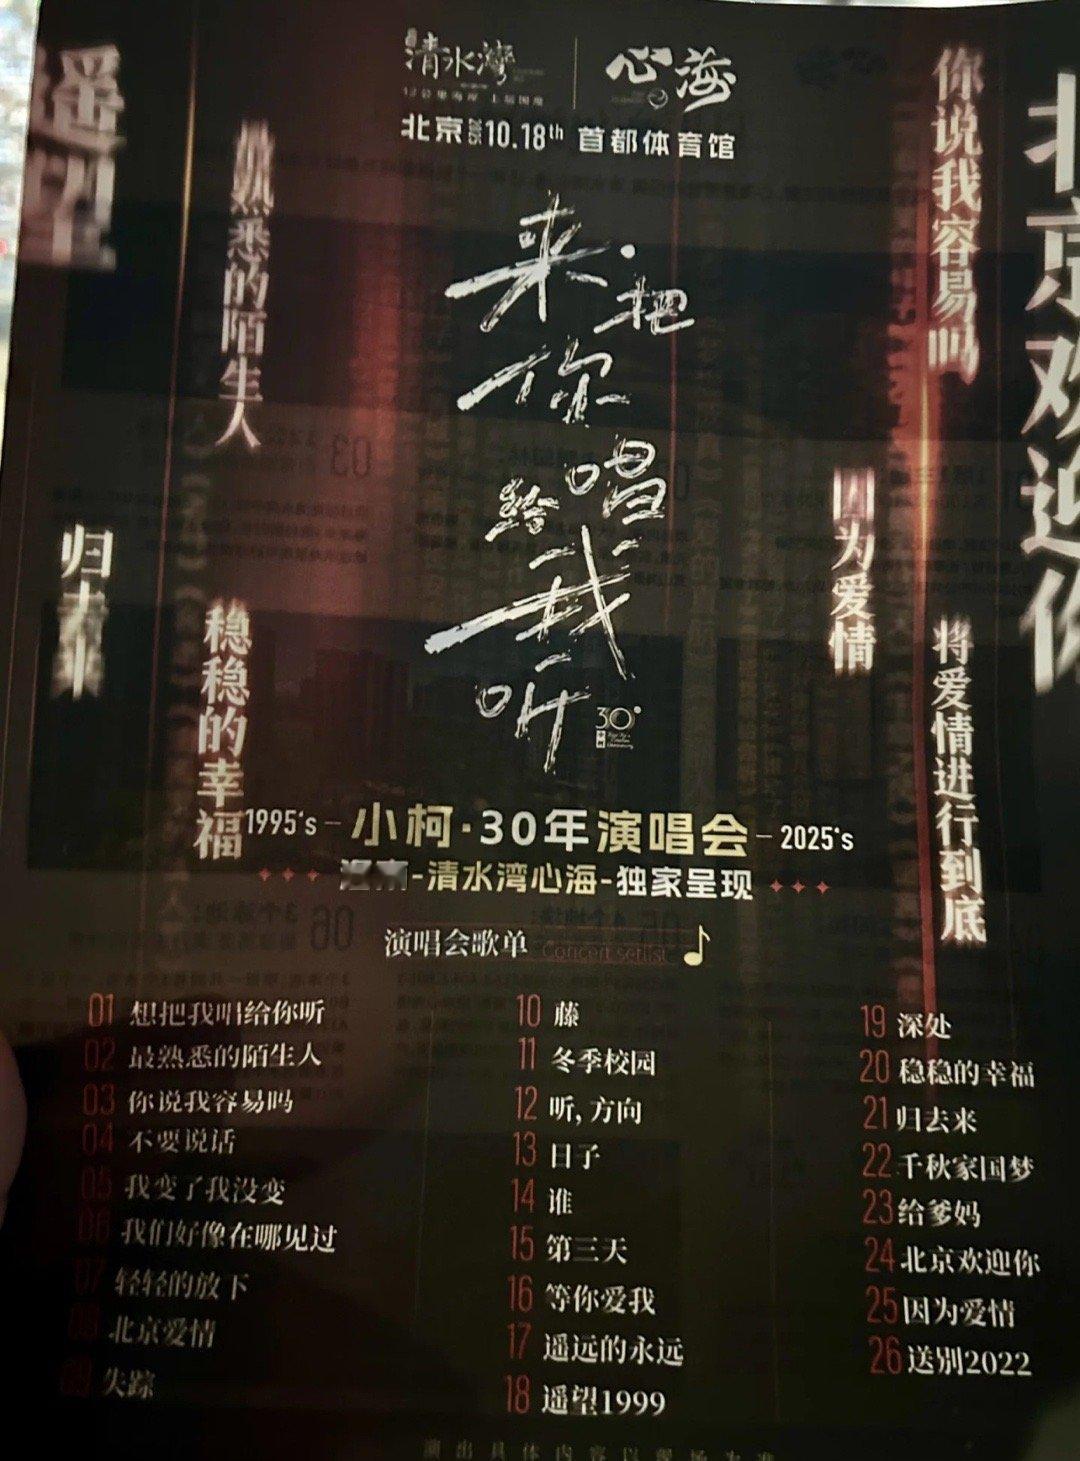 清水湾
12公里海岸 上层国度
心海
北京2025 10.18th 首都体育馆
遥望
最熟悉的陌生人
你说我容易吗
北京欢迎你
来·把
你
唱
给
我
听
30°
归去来
稳稳的幸福
因为爱情
将爱情进行到底
1995's – 小柯·30年演唱会 – 2025's
-清水湾心海-独家呈现
演唱会歌单 Concert setlist
01 想把我唱给你听
02 最熟悉的陌生人
03 你说我容易吗
04 不要说话
05 我变了我没变
06 我们好像在哪见过
07 轻轻的放下
08 北京爱情
09 失踪
10 藤
11 冬季校园
12 听,方向
13 日子
14 谁
15 第三天
16 等你爱我
17 遥远的永远
18 遥望1999
19 深处
20 稳稳的幸福
21 归去来
22 千秋家国梦
23 给爹妈
24 北京欢迎你
25 因为爱情
26 送别2022
演出具体内容以现场为准